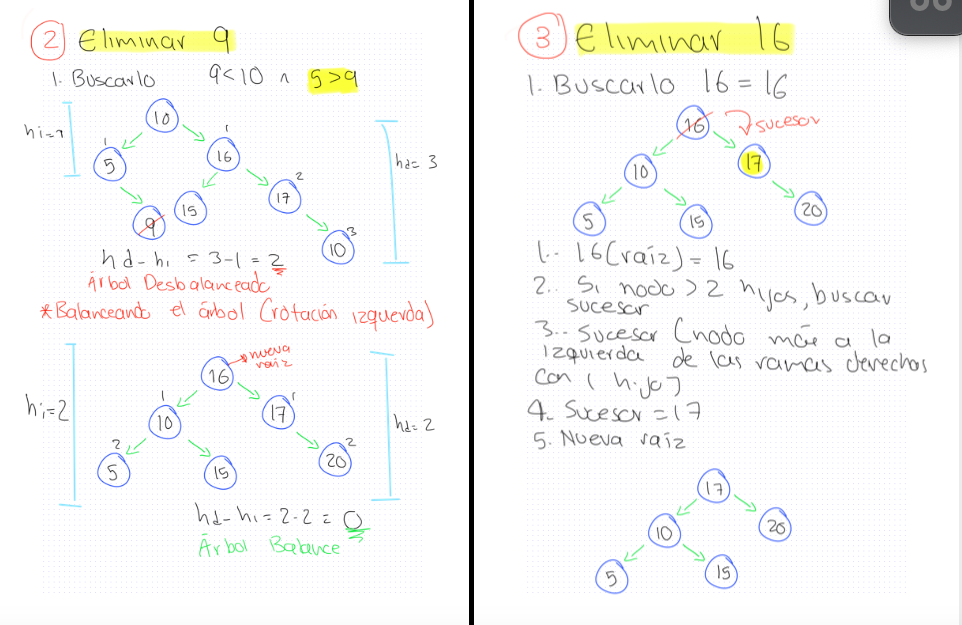 2 Eliminar 9
1. Buscarlo 9<10 ∧ 5>9
hi=1
10
1
1
5
16
hd= 3
2
17
9
15
3
10
hd-hi = 3-1 = 2
Árbol Desbalanceado
*Balanceando el árbol (rotación izquerda)
nueva
raíz
16
hi=2
1
1
10
17
hd= 2
2
2
5
15
20
hd-hi = 2-2 = 0
Árbol Balance
3 Eliminar 16
1. Buscarlo 16 = 16
16
sucesor
10
17
5
15
20
1.- 16(raíz) = 16
2.. Si nodo > 2 hijos, buscar
sucesor
3.- Sucesor (nodo más a la
izquierda de las ramas derechos
con 1 hijo)
4. Sucesor = 17
5. Nueva raíz
17
10
20
5
15